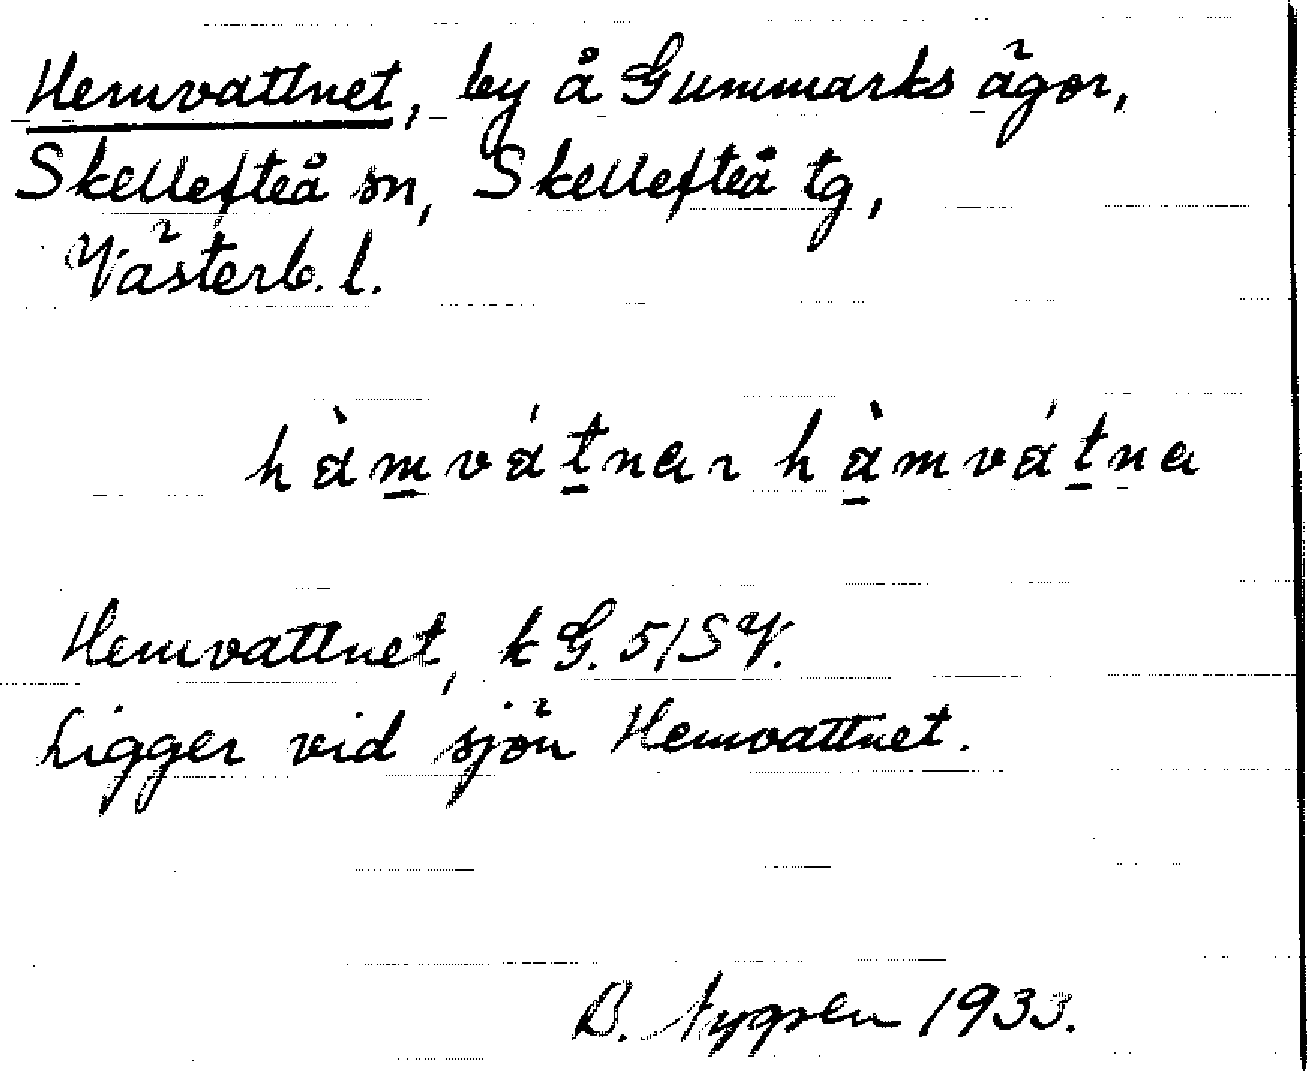 Hemvattnet, by å Gummarks ägor,
Skellefteå sn, Skellefteå tg,
Västerb. l.
hàmvátna ~ hàmvátna
Hemvattnet, k G. 5/SV.
Ligger vid sjön Hemvattnet.
B. Nygren 1933.